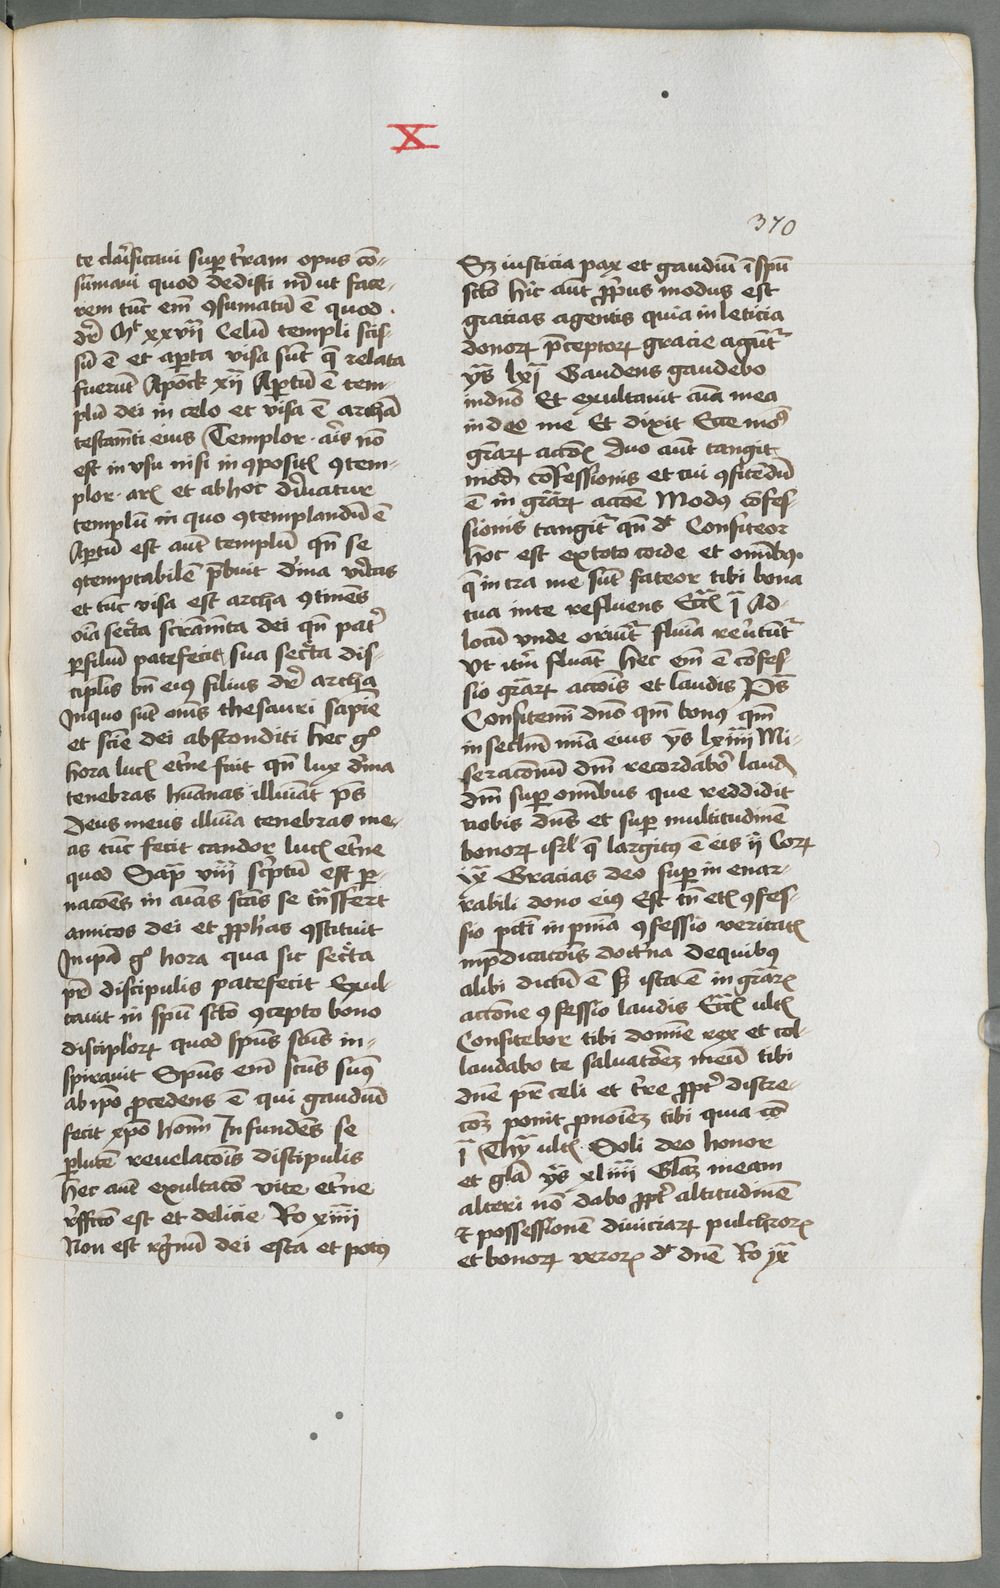 X
370
te clarificavi sup t'ram opus co͞-
su͞mavi quod dedisti m͞i ut face-
rem tu͞c em͞ ꝯsumatu͞ e͞ quod
dr͞ Mt xxvii Velu͞ templi scis-
su͞ e͞ et ap͞ta visa su͞t q͞ relata
fueru͞t Apock xii Ap͞tu͞ e͞ tem-
plu͞ dei in celo et visa e͞ archa͞
testam͞ti eius Templor
est in usu nisi in ꝯpositis ꝯtem-
plor aris et ab hoc d'ivatur
templu͞ in quo ꝯtemplandu͞ e͞
Ap͞tu͞ est aut͞ templu͞ qn͞ se
ꝯtemptabile͞ p͞buit d'ina v'itas
et tu͞c visa est archa ꝯtine͞s
oi͞a sec͞ta scram͞ta dei qn͞ pat'
p filiu͞ patefecit sua sec͞ta dis-
ciplis bn͞ eiꝰ filius dr͞ archa
In quo su͞t om͞s thesauri sapie͞
et scie͞ dei absconditi hec gͦ
hora lucis et'ne fuit qn͞ lux d'ina
tenebras hu͞anas illu͞i͞at ps
Deus meus illu͞i͞a tenebras me-
as tu͞c fecit candor lucis et'ne
quod Sap͞ viii sc'ptu͞ est p
nac͞oes in ai͞as sc͞as se t͞nsfert
amicos dei et ꝓph'as ꝯstituit
In ip͞a gͦ hora qua sic sec͞ta
pr͞ discipulis patefecit Exul-
tavit in spu͞ sc͞to ꝯcepto bono
disciploꝝ quod spu͞s sc͞us in-
spiravit Spu͞s em͞ sc͞us suꝰ
ab ip͞o ꝓcedens e͞ qui gaudiu͞
fecit xp͞o hom͞i Infunde͞s se
p lute͞ revelac͞ois discipulis
hec aut͞ exultac͞o vite et'ne
r'ffc͞co est et delicie Ro xiiii
Non est r'gnu͞ dei esca et potꝰ
Sꝫ iusticia pax et gaudiu͞ i͞ spu͞
sc͞to Hic aut͞ ꝓp'us modus est
gracias agentis quia in leticia
donoꝝ p͞ceptoꝝ gracie agu͞t'
ys͞ lxi Gaudens gaudebo
in dn͞o Et exultavit ai͞a mea
in deo meo Et dixit Ecce modꝰ
gr͞aꝝ acco͞is Duo aut͞ tangit
modu͞ co͞fessionis et cui ꝯfitendu͞
e͞ in gr͞aꝝ acc͞oe Modꝰ co͞fes-
sionis tangit' qn͞ d͞r Confiteor
hoc est ex toto corde et om͞ibꝰ
q͞ intra me su͞t fateor tibi bona
tua in te refluens Ecc͞s i Ad
locu͞ unde oriu͞t' flui͞a rev'tu͞t'
ut it͞m flua͞t hec em͞ e͞ co͞fes-
sio gr͞aꝝ acc͞ois et laudis Ps͞
Confitemi͞ dn͞o qm͞ bonꝰ qm͞
in sec'lu͞ mi͞a eius ys͞ lxiiii Mi-
serac͞onu͞ dn͞i recordabor laude͞
dn͞i sup om͞ibus que reddidit
nobis dn͞s et sup multitudine͞
bonoꝝ isrl' q͞ largitꝰ e͞ eis ii Corꝝ
ix Gracias deo sup inenar-
rabili dono eiꝰ Est tn͞ et͞ ꝯfes-
sio pc͞ti in pni͞a ꝯfessio veritatis
in p͞dicac͞ois doct'na de quibꝰ
alibi dictu͞ e͞ Sꝫ ista e͞ in gr͞aꝝ
acc͞one ꝯfessio laudis Ecc͞i ult͞
Confitebor tibi domi͞e rex et col-
laudabo te salvatore͞ meu͞ tibi
dn͞e pr͞ celi et t're ꝓpt' discre-
c͞oꝫ ponit p͞noi͞eꝫ tibi quia co͞
i Thy͞ ult͞ Soli deo honor
et gl͞a ys͞ xliiii Gl͞aꝫ meam
alteri no͞ dabo ꝓpt' altitudine͞
et possessione͞ diviciaꝝ pulchroꝝ
et bonoꝝ veroꝝ d͞r dn͞e Ro ix